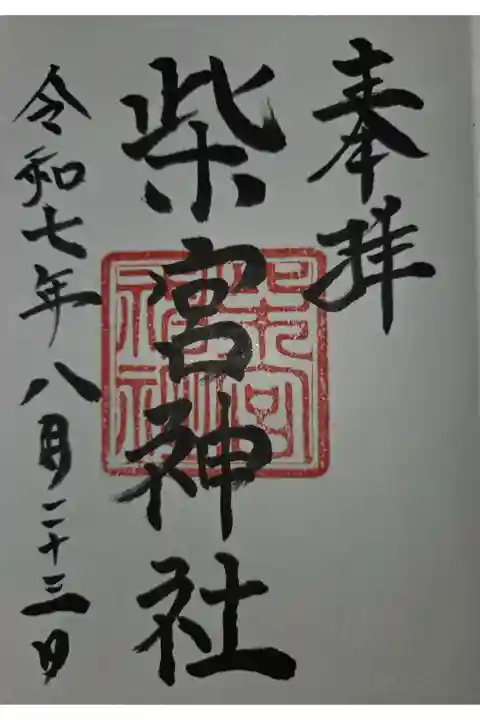 奉拝
柴宮神社
令和七年八月二十三日